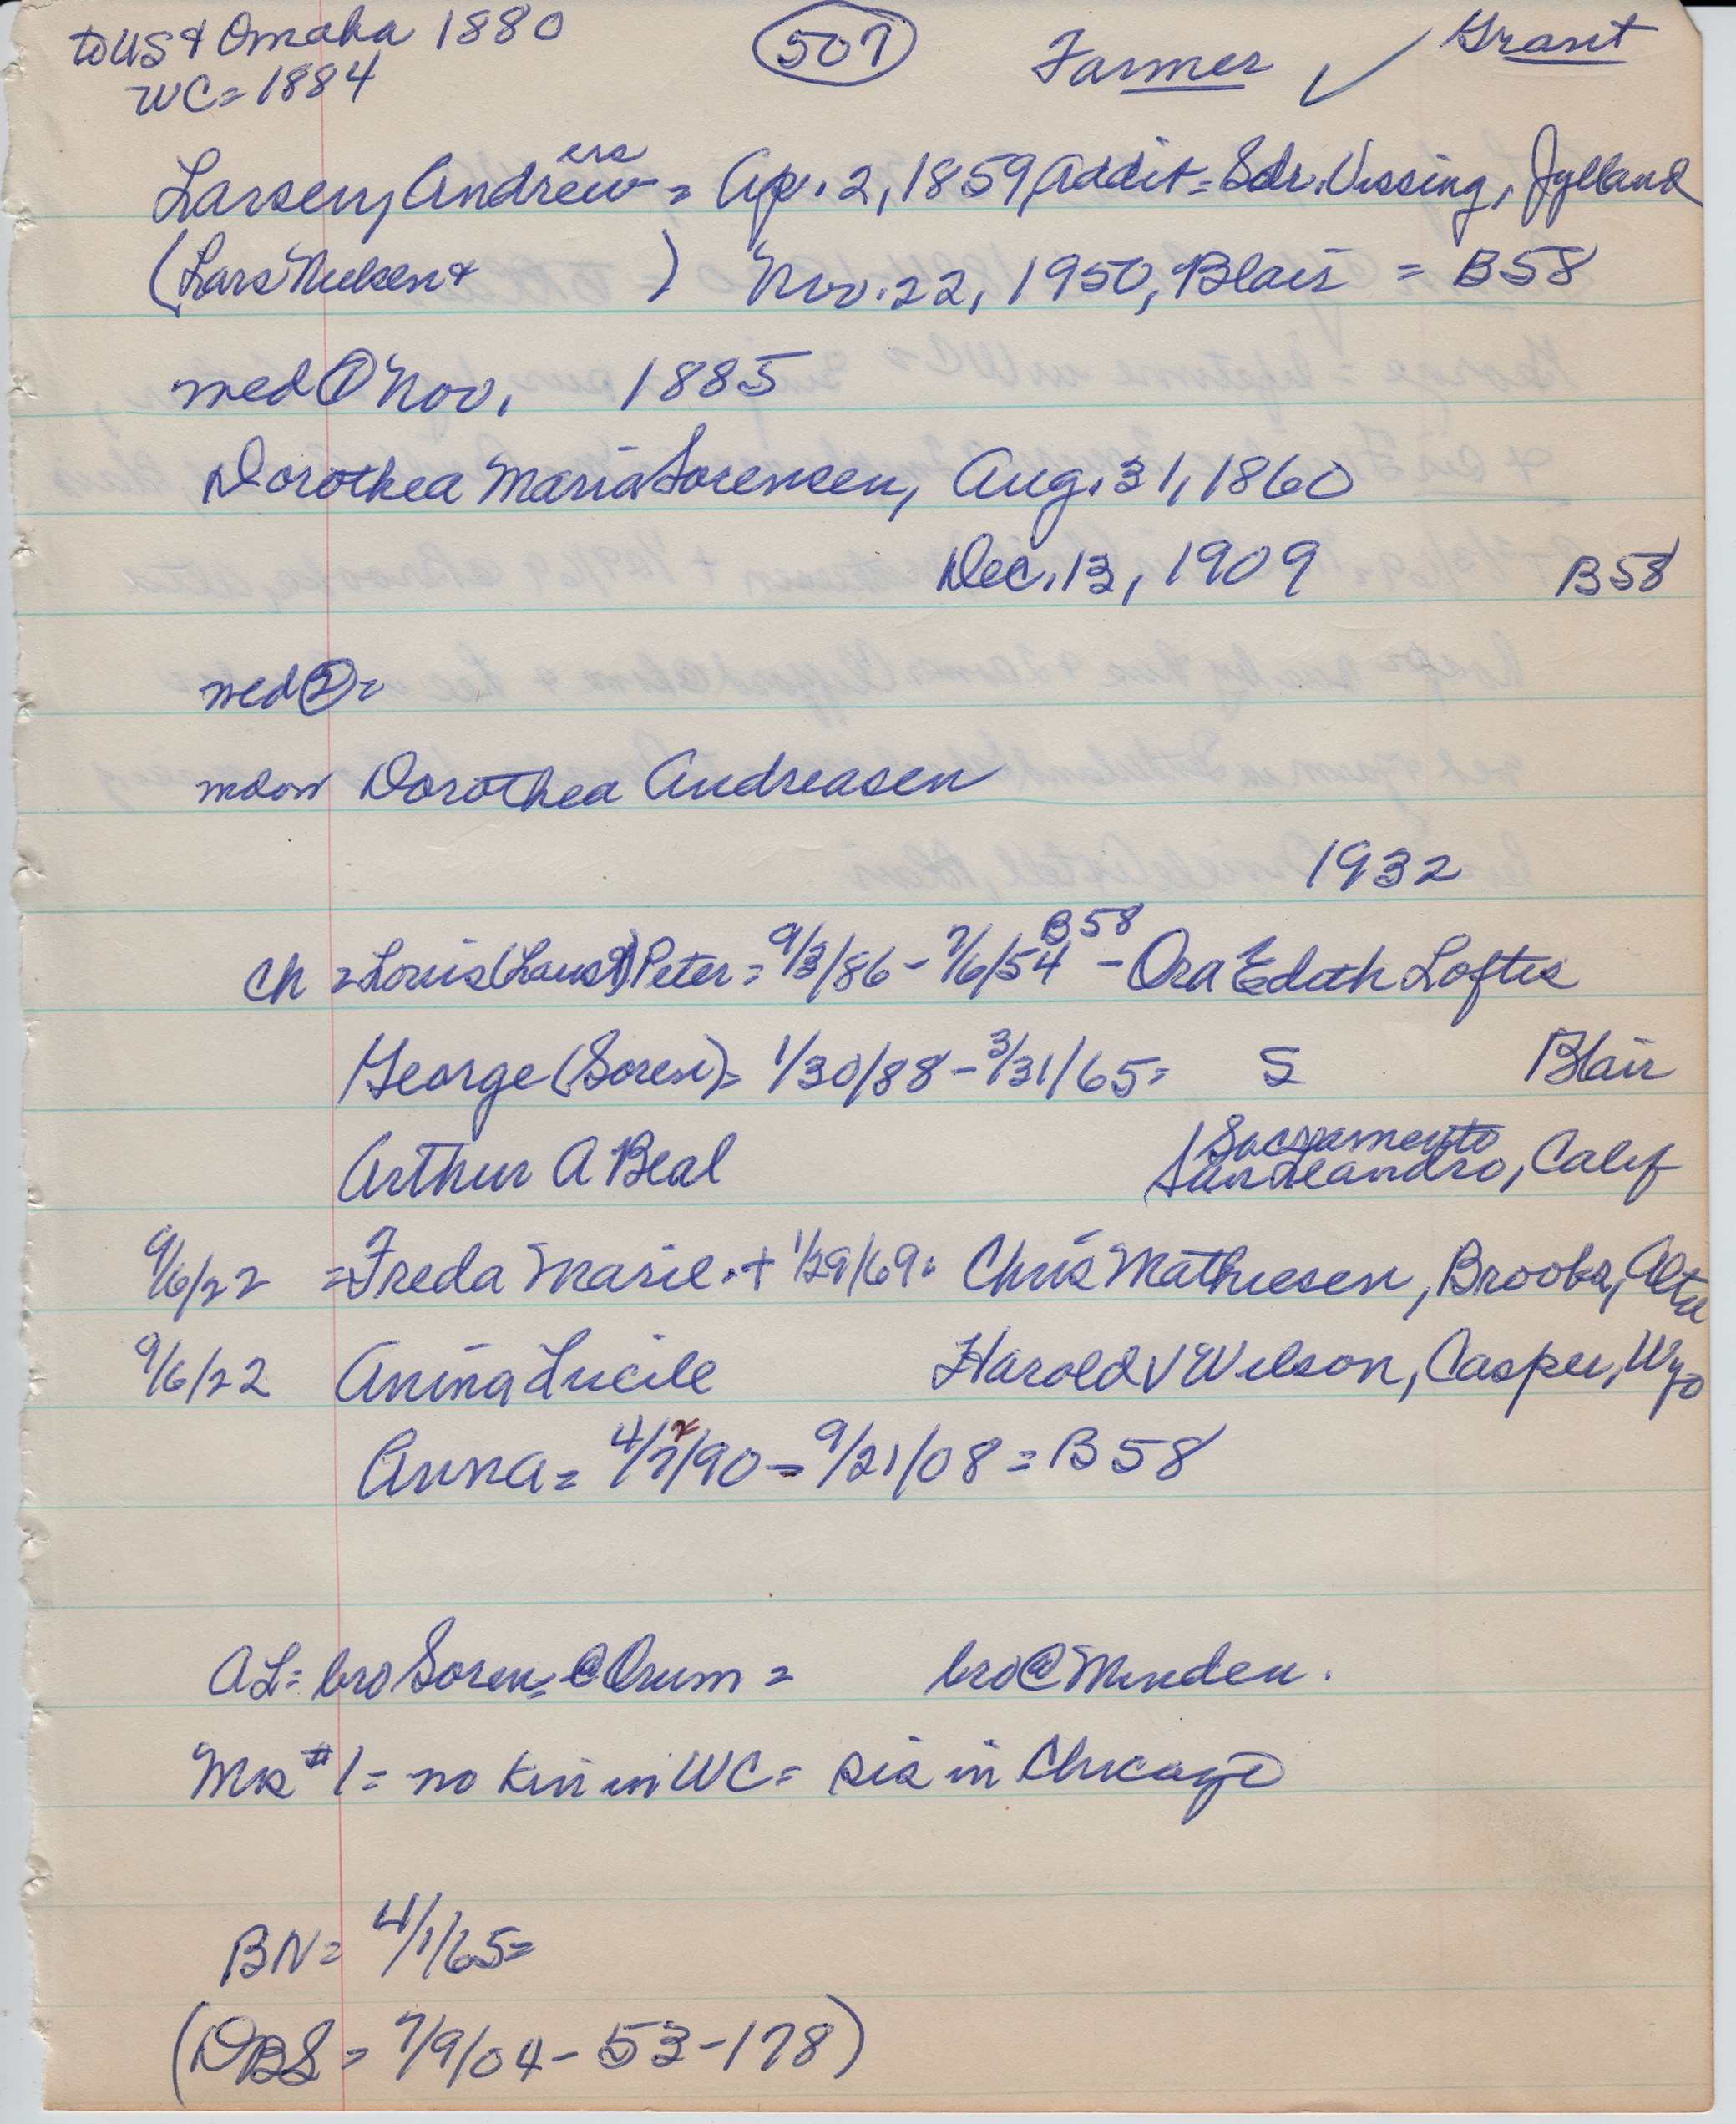 to US & Omaha 1880 (507) Farmer ✓ Grant
WC = 1884
ers
Larsen, Andrew = Ap. 2, 1859, Addit = Sdr. Vissing, Jylland
(Lars Nielsen & ) Nov. 22, 1950, Blair = B58
med ① Nov. 1885
Dorothea Maria Sorensen, Aug. 31, 1860
Dec. 13, 1909 B58
med ② =
Dorothea Andreasen
1932
B58
ch = Louis (Laust) Peter = 9/3/86 - 7/6/54 - Ora Edith Loftis
George (Soren) = 1/30/88 - 3/31/65 = S Blair
Sacramento
Arthur A Beal San Leandro, Calif
9/6/22 = Freda Marie + 1/29/69 = Chris Mathiesen, Brooks, Alta
9/6/22 Anina Lucile Harold V Wilson, Casper, Wyo
Anna = 4/7/90 - 9/21/08 = B58
AL = bro Soren = @ Orum = bro @ Minden.
Mrs #1 = no kin in WC = sis in Chicago
BN = 4/1/65 =
(DBS = 7/9/04 - 53 - 178)